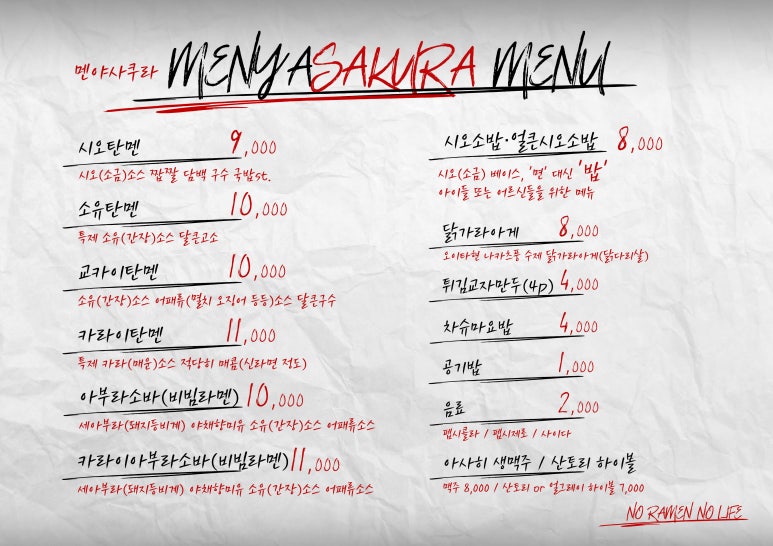 멘야사쿠라 MENYA SAKURA MENU
시오탄멘 9,000
시오(소금)소스 짭짤 담백 구수 국밥st.
소유탄멘 10,000
특제 소유(간장)소스 달큰고소
교카이탄멘 10,000
소유(간장)소스 어패류(멸치 오징어 등등)소스 달큰구수
카라이탄멘 11,000
특제 카라(매운)소스 적당히 매콤(신라면 정도)
아부라소바(비빔라멘) 10,000
세아부라(돼지등비계) 야채향미유 소유(간장)소스 어패류소스
카라이아부라소바(비빔라멘) 11,000
세아부라(돼지등비계) 야채향미유 소유(간장)소스 어패류소스
시오소밥·얼큰시오소밥 8,000
시오(소금) 베이스, '면' 대신 '밥'
아이들 또는 어르신들을 위한 메뉴
닭가라아게 8,000
오이타현 나카츠풍 수제 닭가라아게(닭다리살)
튀김교자만두(4p) 4,000
차슈마요밥 4,000
공기밥 1,000
음료 2,000
펩시콜라 / 펩시제로 / 사이다
아사히 생맥주 / 산토리 하이볼
맥주 8,000 / 산토리 or 얼그레이 하이볼 7,000
NO RAMEN NO LIFE